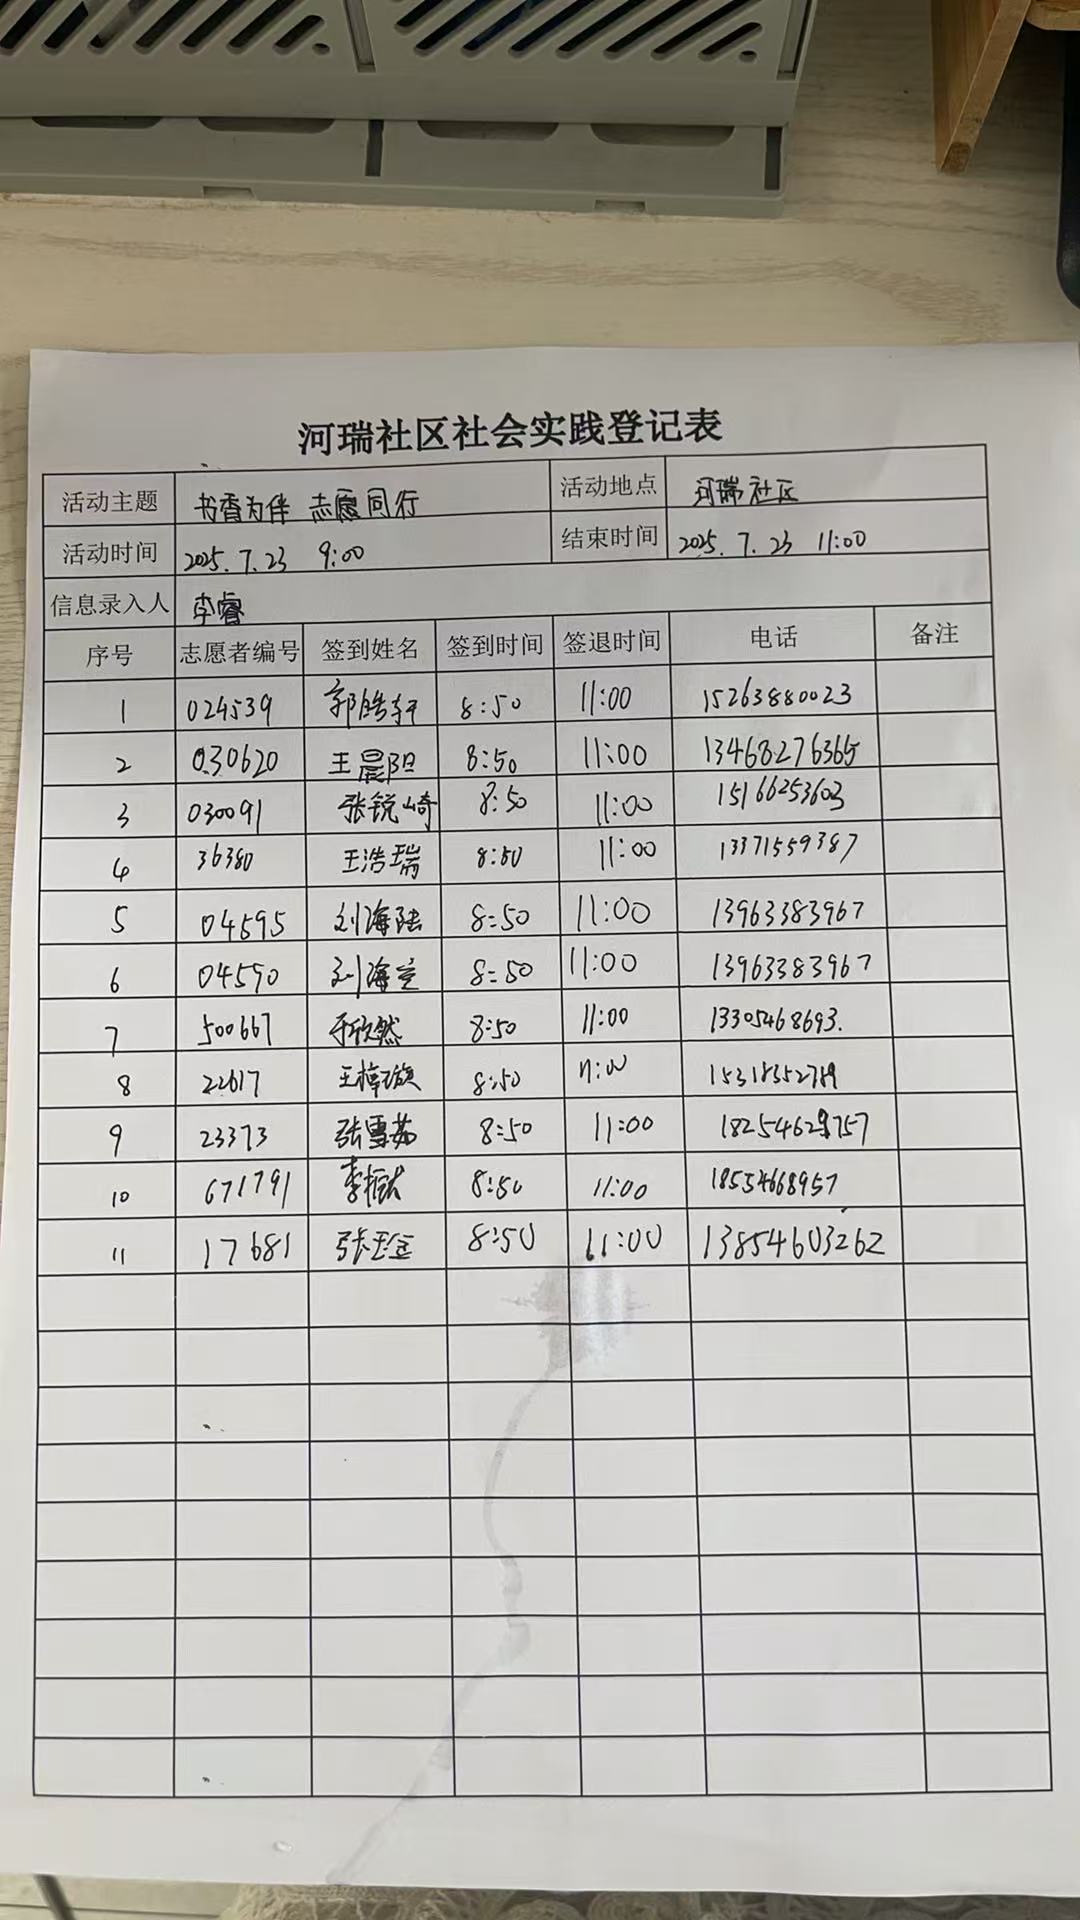 河瑞社区社会实践登记表
活动主题 书香为伴 志愿同行 活动地点 河瑞社区
活动时间 2025.7.23 9:00 结束时间 2025.7.23 11:00
信息录入人 李睿
序号 志愿者编号 签到姓名 签到时间 签退时间 电话 备注
1 024539 郭皓轩 8:50 11:00 15263880023
2 030620 王晨阳 8:50 11:00 13468276365
3 030091 张锐崎 8:50 11:00 15166253603
4 36380 王浩瑞 8:50 11:00 13371559387
5 04595 刘海陆 8:50 11:00 13963383967
6 04590 刘海空 8:50 11:00 13963383967
7 500667 于欣然 8:50 11:00 13305468693.
8 22617 8:50 11:00 15318352789
9 23373 张雪茹 8:50 11:00
10 671791 8:50 11:00 18554668957
11 17681 8:50 11:00 13854603262